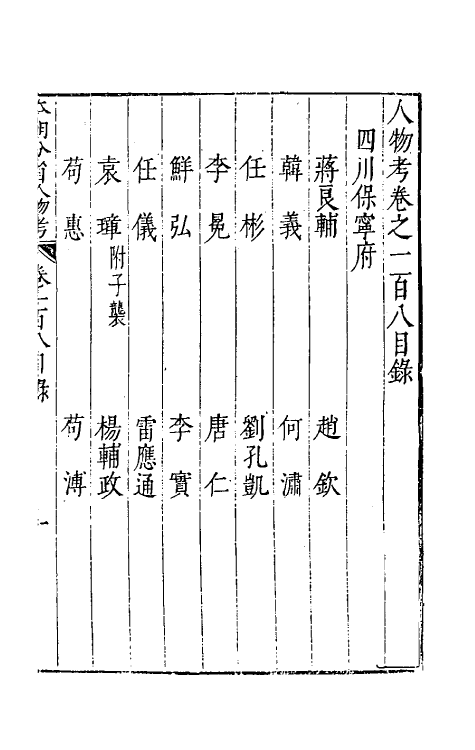 人物考卷之一百八目錄
四川保寧府
蔣良輔 趙欽
韓義 何瀟
任彬 劉孔凱
李晃 唐仁
鮮弘 李實
任儀 雷應通
袁璋附子襲 楊輔政
苟惠 苟溥
本朝分省人物考 卷一百八目錄 一